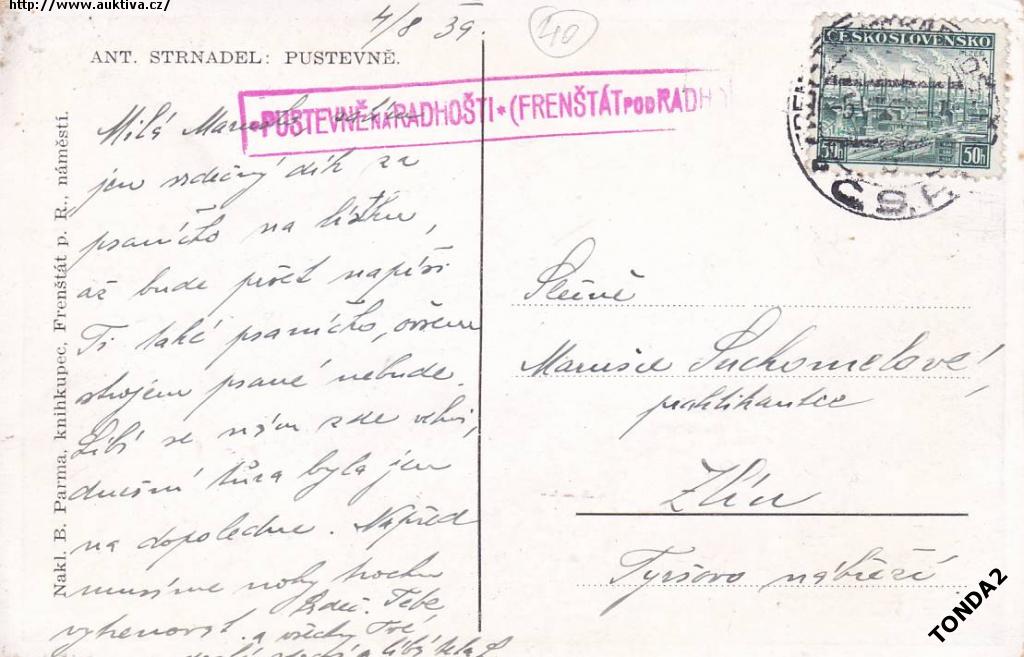 http://www.auktiva.cz/
4/8 39.
40
ANT. STRNADEL: PUSTEVNĚ.
PUSTEVNĚ NA RADHOŠTI * (FRENŠTÁT POD RADH
ČESKOSLOVENSKO
PLZEŇ
50h 50h
ČSR
Nakl. B. Parma, knihkupec, Frenštát p. R., náměstí.
Milá Maruško,
jen srdečný dík za
psaníčko na lístku,
až bude pršet napíši
Ti také psaníčko, ovšem
strojem psané nebude.
Líbí se nám zde velmi,
dnešní túra byla jen
na dopoledne. Napřed
musíme nohy trochu
Srdeč. Tebe
a všechy Tvé
Slečně
Marušce Suchomelové
praktikantce
Zlín
Tyršovo nábřeží
TONDA2